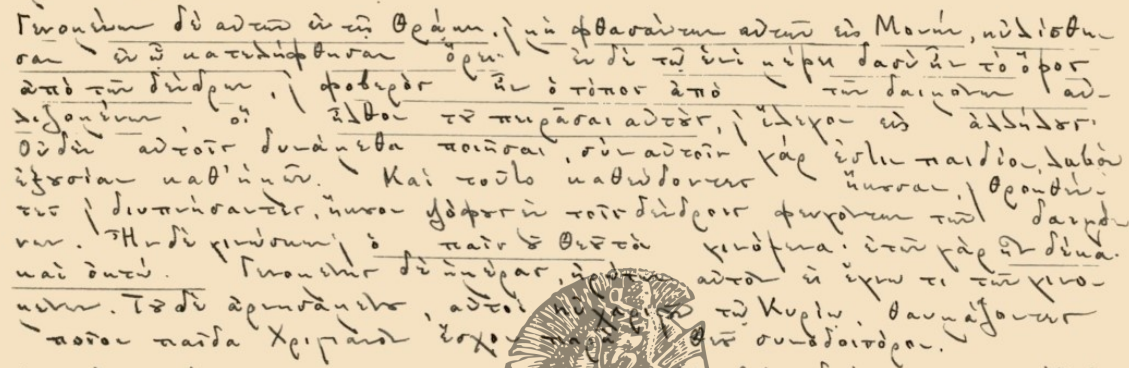 Γενομένων δὲ αὐτῶν ἐν τῇ Θράκῃ, καὶ φθασάντων αὐτῶν εἰς Μονήν, ηὐλίσθη-
σαν ἐν ᾧ κατελήφθησαν ὄρει· ἐν δὲ τῷ ἑνὶ μέρει δασὺ ἦν τὸ ὄρος
ἀπὸ τῶν δένδρων, καὶ φοβερὸς ἦν ὁ τόπος ἀπὸ τῶν δαιμόνων αὐ-
λιζομένων οἳ ἐλθόντες τοῦ πειρᾶσαι αὐτούς, ἔλεγον εἰς ἀλλήλους·
Οὐδὲν αὐτοῖς δυνάμεθα ποιῆσαι, σὺν αὐτοῖς γάρ ἐστιν παιδίον, λαβὸν
ἐξουσίαν καθ' ἡμῶν. Καὶ τοῦτο καθεύδοντες ἤκουσαν, θροηθέν-
τες καὶ διυπνήσαντες, ἤκουον ψόφους ἐν τοῖς δένδροις φευγόντων τῶν δαιμό-
νων. Ἦν δὲ γινώσκων ὁ παῖς τοῦ Θεοῦ τὰ γινόμενα· ἐτῶν γὰρ ἦν δέκα
καὶ ὀκτώ. Γενομένης δὲ ἡμέρας, ἠρώτων αὐτὸν εἰ ἔγνω τι τῶν γινο-
μένων. Τοῦ δὲ ἀρνησαμένου, αὐτοὶ ηὐχαρίστουν τῷ Κυρίῳ, θαυμάζοντες
ποῖον παῖδα Χριστιανὸν ἔσχον παρὰ Θεοῦ συνοδοιπόρον.